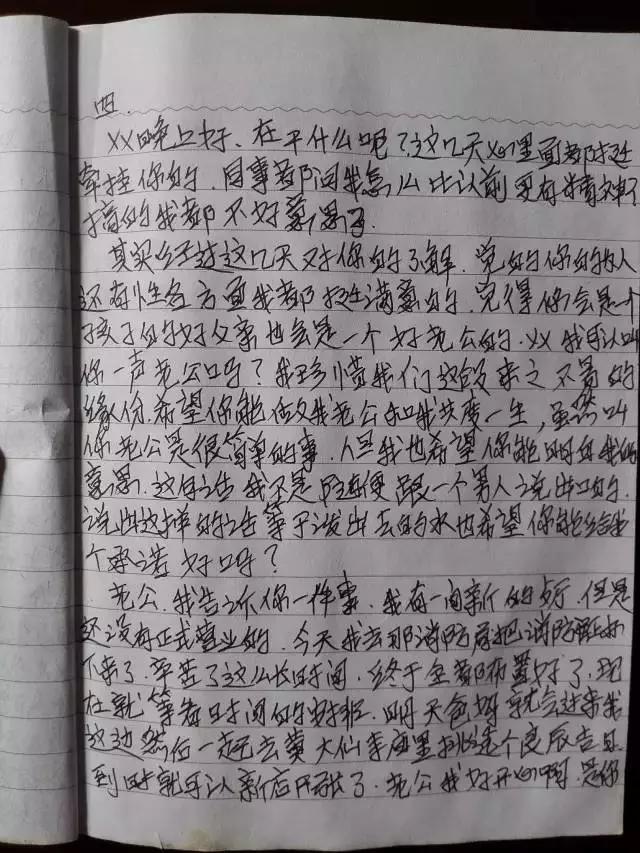 四.
XX晚上好、在干什么呢？这几天心里面都挺
牵挂你的、同事都问我怎么比以前更有精神了
搞的我都不好意思了
其实经过这几天对你的了解、觉的你的为人
还有性各方面我都挺满意的、觉得你会是一个
孩子的好父亲也会是一个好老公的、XX我可以叫
你一声老公吗？我珍惜我们这段来之不易的
缘份、希望你能做我老公和我共度一生，虽然叫
你老公是很简单的事、但我也希望你能明白我的
意思、这句话我不是随便跟一个男人说出口的、
说出这样的话等于泼出去的水也希望你能给我
个承诺好吗？
老公、我告诉你一件事、我有一间新的店、但是
还没有正式营业的、今天我去那消防局把消防证办
下来了、辛苦了这么长时间、终于全都布置好了、现
在就等着时间的安排、明天爸妈就会过来我
这边然后一起去黄大仙李庙里挑选个良辰吉日
到时就可以新店开张了、老公我好开心啊、是你